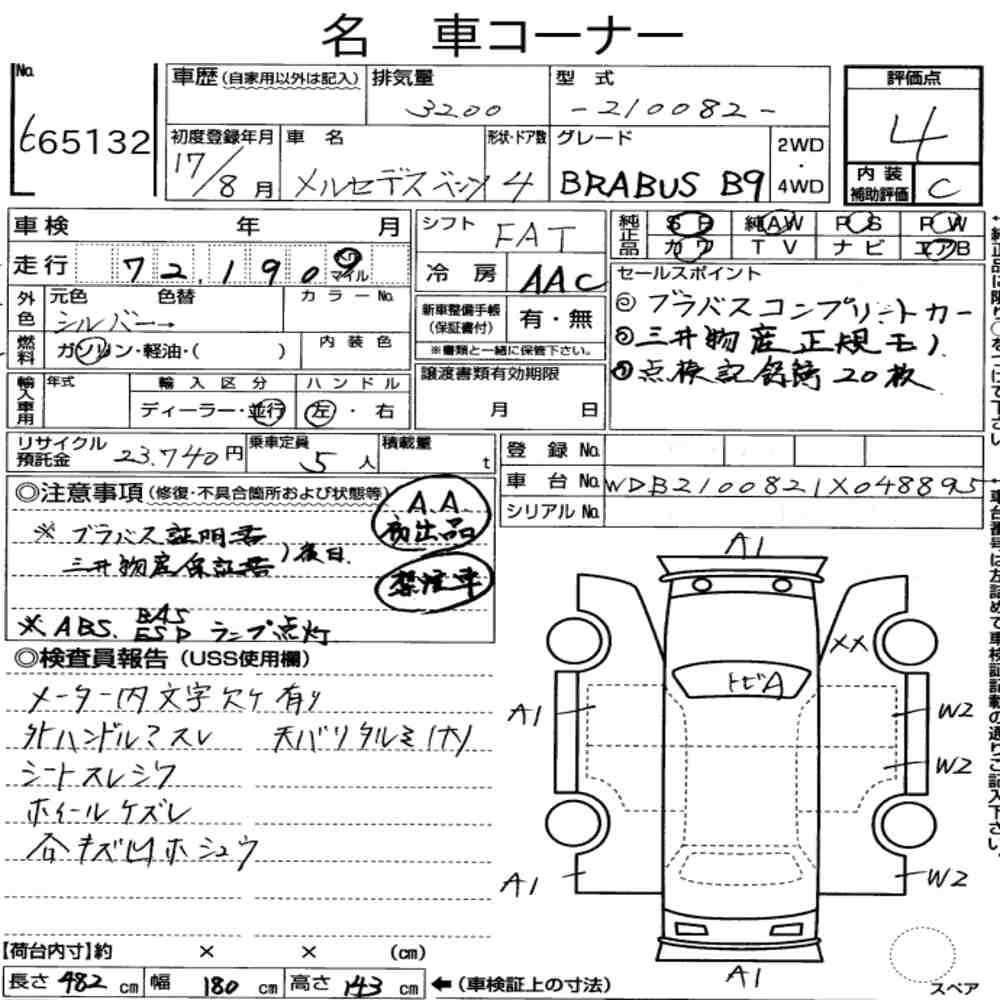 名 車コーナー
No. 665132
車歴(自家用以外は記入) 排気量 3200 型 式 -210082-
評価点 4
初度登録年月 17/8月 車 名 メルセデスベンツ 形状・ドア数 4 グレード BRABUS B9 2WD・4WD
内装補助評価 C
車検 年 月 シフト FAT
純正品 SR 純AW PS PW
カワ TV ナビ エアB
走行 72,190 マイル
冷房 AAC
セールスポイント
◎ブラバスコンプリートカー
◎三井物産正規モノ
◎点検記録簿20枚
外色 元色 色替 カラーNo.
シルバー→
新車整備手帳(保証書付) 有・無
※書類と一緒に保管下さい。
燃料 ガソリン・軽油・( ) 内装色
輸入車用 年式 輸入区分 ハンドル
ディーラー・並行 左・右
譲渡書類有効期限
月 日
リサイクル預託金 23.740円 乗車定員 5人 積載量 t
登録No.
車台No. WDB2100821X048895
シリアルNo.
◎注意事項(修復・不具合箇所および状態等)
A.A. 初出品
※ブラバス証明書
三井物産保証書)後日
禁煙車
※ABS. BAS ESP ランプ点灯
◎検査員報告(USS使用欄)
メーター内文字欠ケ有り
外ハンドルマスレ 天バリタルミ(ナカ)
シートスレシワ
ホイールケズレ
各キズ凹ホシュウ
A1
XX
トビA
A1 W2
W2
A1 W2
A1
スペア
【荷台内寸】約 × × (cm)
長さ 482 cm 幅 180 cm 高さ 143 cm ←(車検証上の寸法)